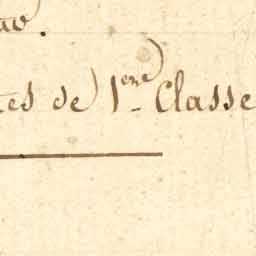 tes de 1ere Classe